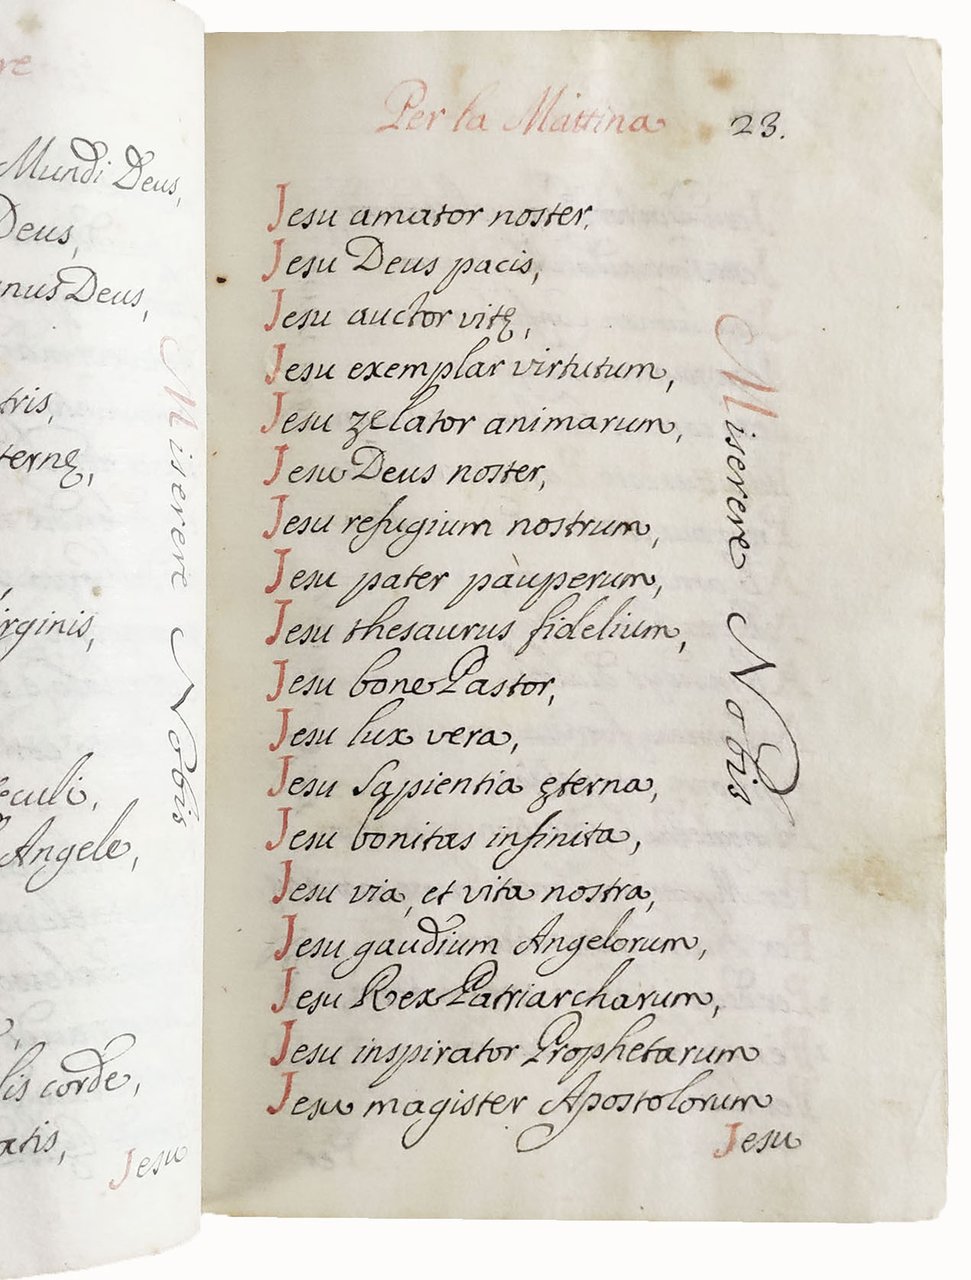 re
Mundi Deus,
Deus,
nus Deus,
tris,
ternę,
irginis,
eculi,
Angele,
lis corde,
atis,
Jesu
Miserere Nobis
Per la Mattina 23.
Jesu amator noster,
Jesu Deus pacis,
Jesu auctor vitę,
Jesu exemplar virtutum,
Jesu zelator animarum,
Jesu Deus noster,
Jesu refugium nostrum,
Jesu pater pauperum,
Jesu thesaurus fidelium,
Jesu bone Pastor,
Jesu lux vera,
Jesu Sapientia ęterna,
Jesu bonitas infinita,
Jesu via, et vita nostra,
Jesu gaudium Angelorum,
Jesu Rex Patriarcharum,
Jesu inspirator Prophetarum
Jesu magister Apostolorum
Jesu
Miserere Nobis